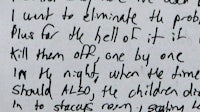 I want to eliminate the prob
Plus for the hell of it if
Kill them off one by one
In the night, when the time
should ALSO, the children di
in to stacy's room